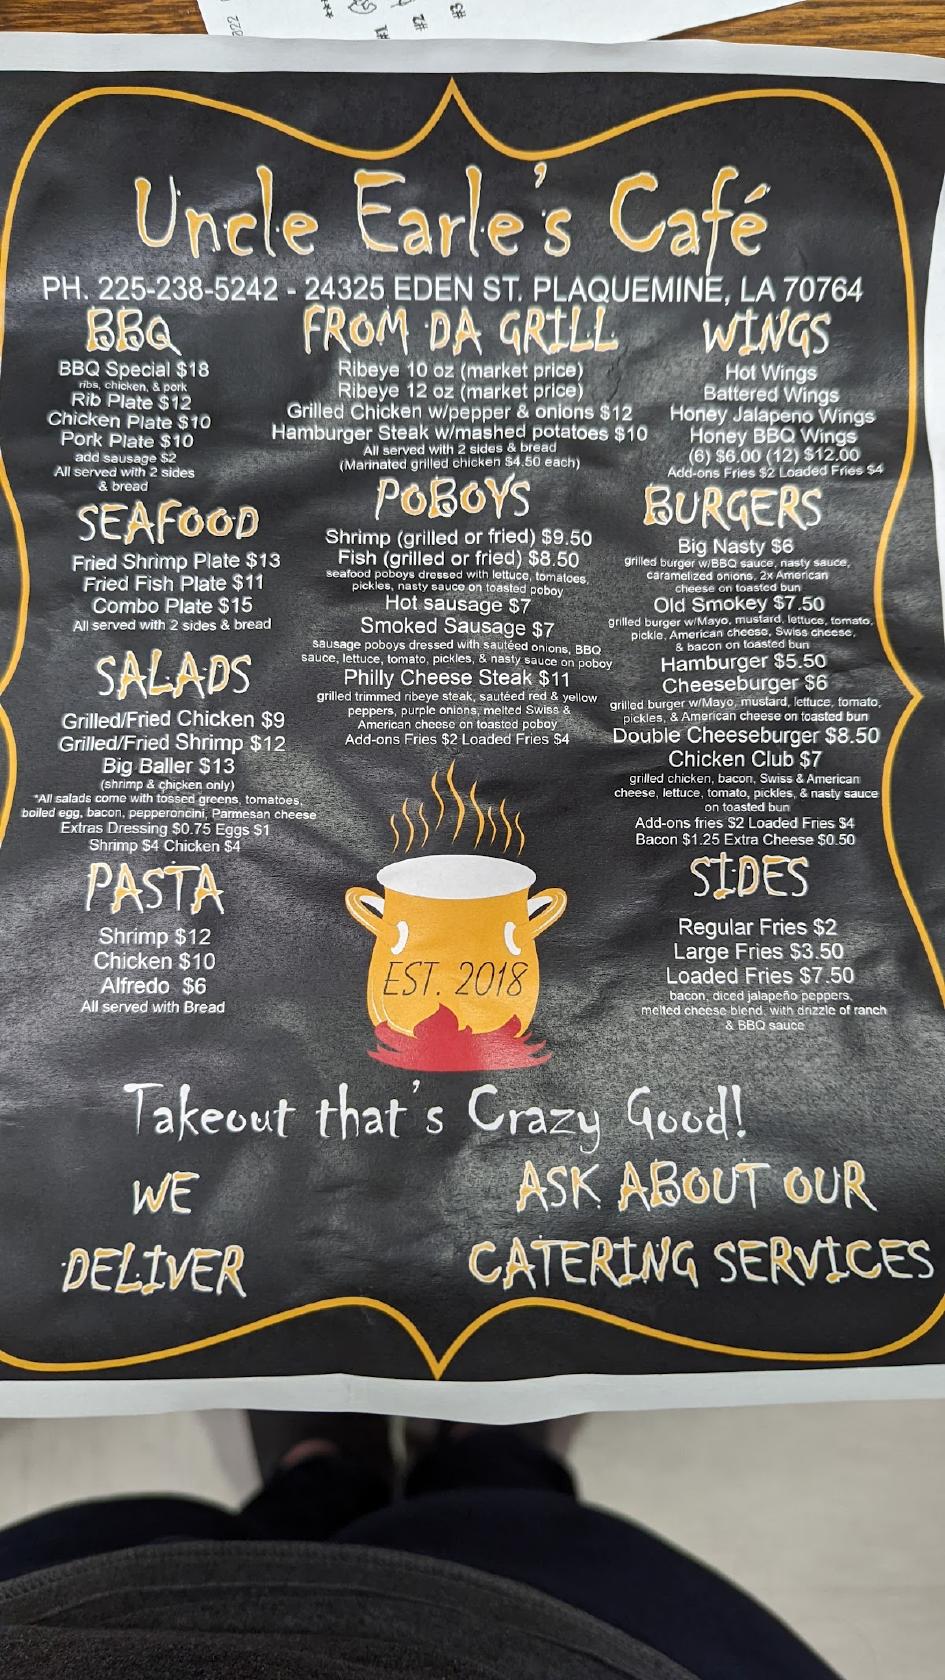 022
#1
#2
#3
Uncle Earle's Café
PH. 225-238-5242 - 24325 EDEN ST. PLAQUEMINE, LA 70764
BBQ
BBQ Special $18
ribs, chicken, & pork
Rib Plate $12
Chicken Plate $10
Pork Plate $10
add sausage $2
All served with 2 sides
& bread
SEAFOOD
Fried Shrimp Plate $13
Fried Fish Plate $11
Combo Plate $15
All served with 2 sides & bread
SALADS
Grilled/Fried Chicken $9
Grilled/Fried Shrimp $12
Big Baller $13
(shrimp & chicken only)
*All salads come with tossed greens, tomatoes,
boiled egg, bacon, pepperoncini, Parmesan cheese
Extras Dressing $0.75 Eggs $1
Shrimp $4 Chicken $4
PASTA
Shrimp $12
Chicken $10
Alfredo $6
All served with Bread
FROM DA GRILL
Ribeye 10 oz (market price)
Ribeye 12 oz (market price)
Grilled Chicken w/pepper & onions $12
Hamburger Steak w/mashed potatoes $10
All served with 2 sides & bread
(Marinated grilled chicken $4.50 each)
POBOYS
Shrimp (grilled or fried) $9.50
Fish (grilled or fried) $8.50
seafood poboys dressed with lettuce, tomatoes,
pickles, nasty sauce on toasted poboy
Hot sausage $7
Smoked Sausage $7
sausage poboys dressed with sautéed onions, BBQ
sauce, lettuce, tomato, pickles, & nasty sauce on poboy
Philly Cheese Steak $11
grilled trimmed ribeye steak, sautéed red & yellow
peppers, purple onions, melted Swiss &
American cheese on toasted poboy
Add-ons Fries $2 Loaded Fries $4
EST. 2018
WINGS
Hot Wings
Battered Wings
Honey Jalapeno Wings
Honey BBQ Wings
(6) $6.00 (12) $12.00
Add-ons Fries $2 Loaded Fries $4
BURGERS
Big Nasty $6
grilled burger w/BBQ sauce, nasty sauce,
caramelized onions, 2x American
cheese on toasted bun
Old Smokey $7.50
grilled burger w/Mayo, mustard, lettuce, tomato,
pickle, American cheese, Swiss cheese,
& bacon on toasted bun
Hamburger $5.50
Cheeseburger $6
grilled burger w/Mayo, mustard, lettuce, tomato,
pickles, & American cheese on toasted bun
Double Cheeseburger $8.50
Chicken Club $7
grilled chicken, bacon, Swiss & American
cheese, lettuce, tomato, pickles, & nasty sauce
on toasted bun
Add-ons fries $2 Loaded Fries $4
Bacon $1.25 Extra Cheese $0.50
SIDES
Regular Fries $2
Large Fries $3.50
Loaded Fries $7.50
bacon, diced jalapeño peppers,
melted cheese blend, with drizzle of ranch
& BBQ sauce
Takeout that's Crazy Good!
WE
DELIVER
ASK ABOUT OUR
CATERING SERVICES